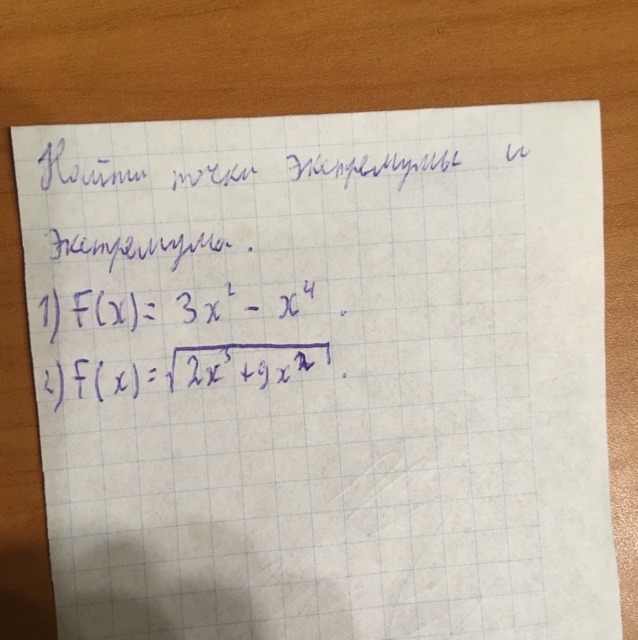 Найти точки экстремумы и
экстремума.
1) F(x) = 3x² - x⁴.
2) F(x) = √(2x³ + 9x²).